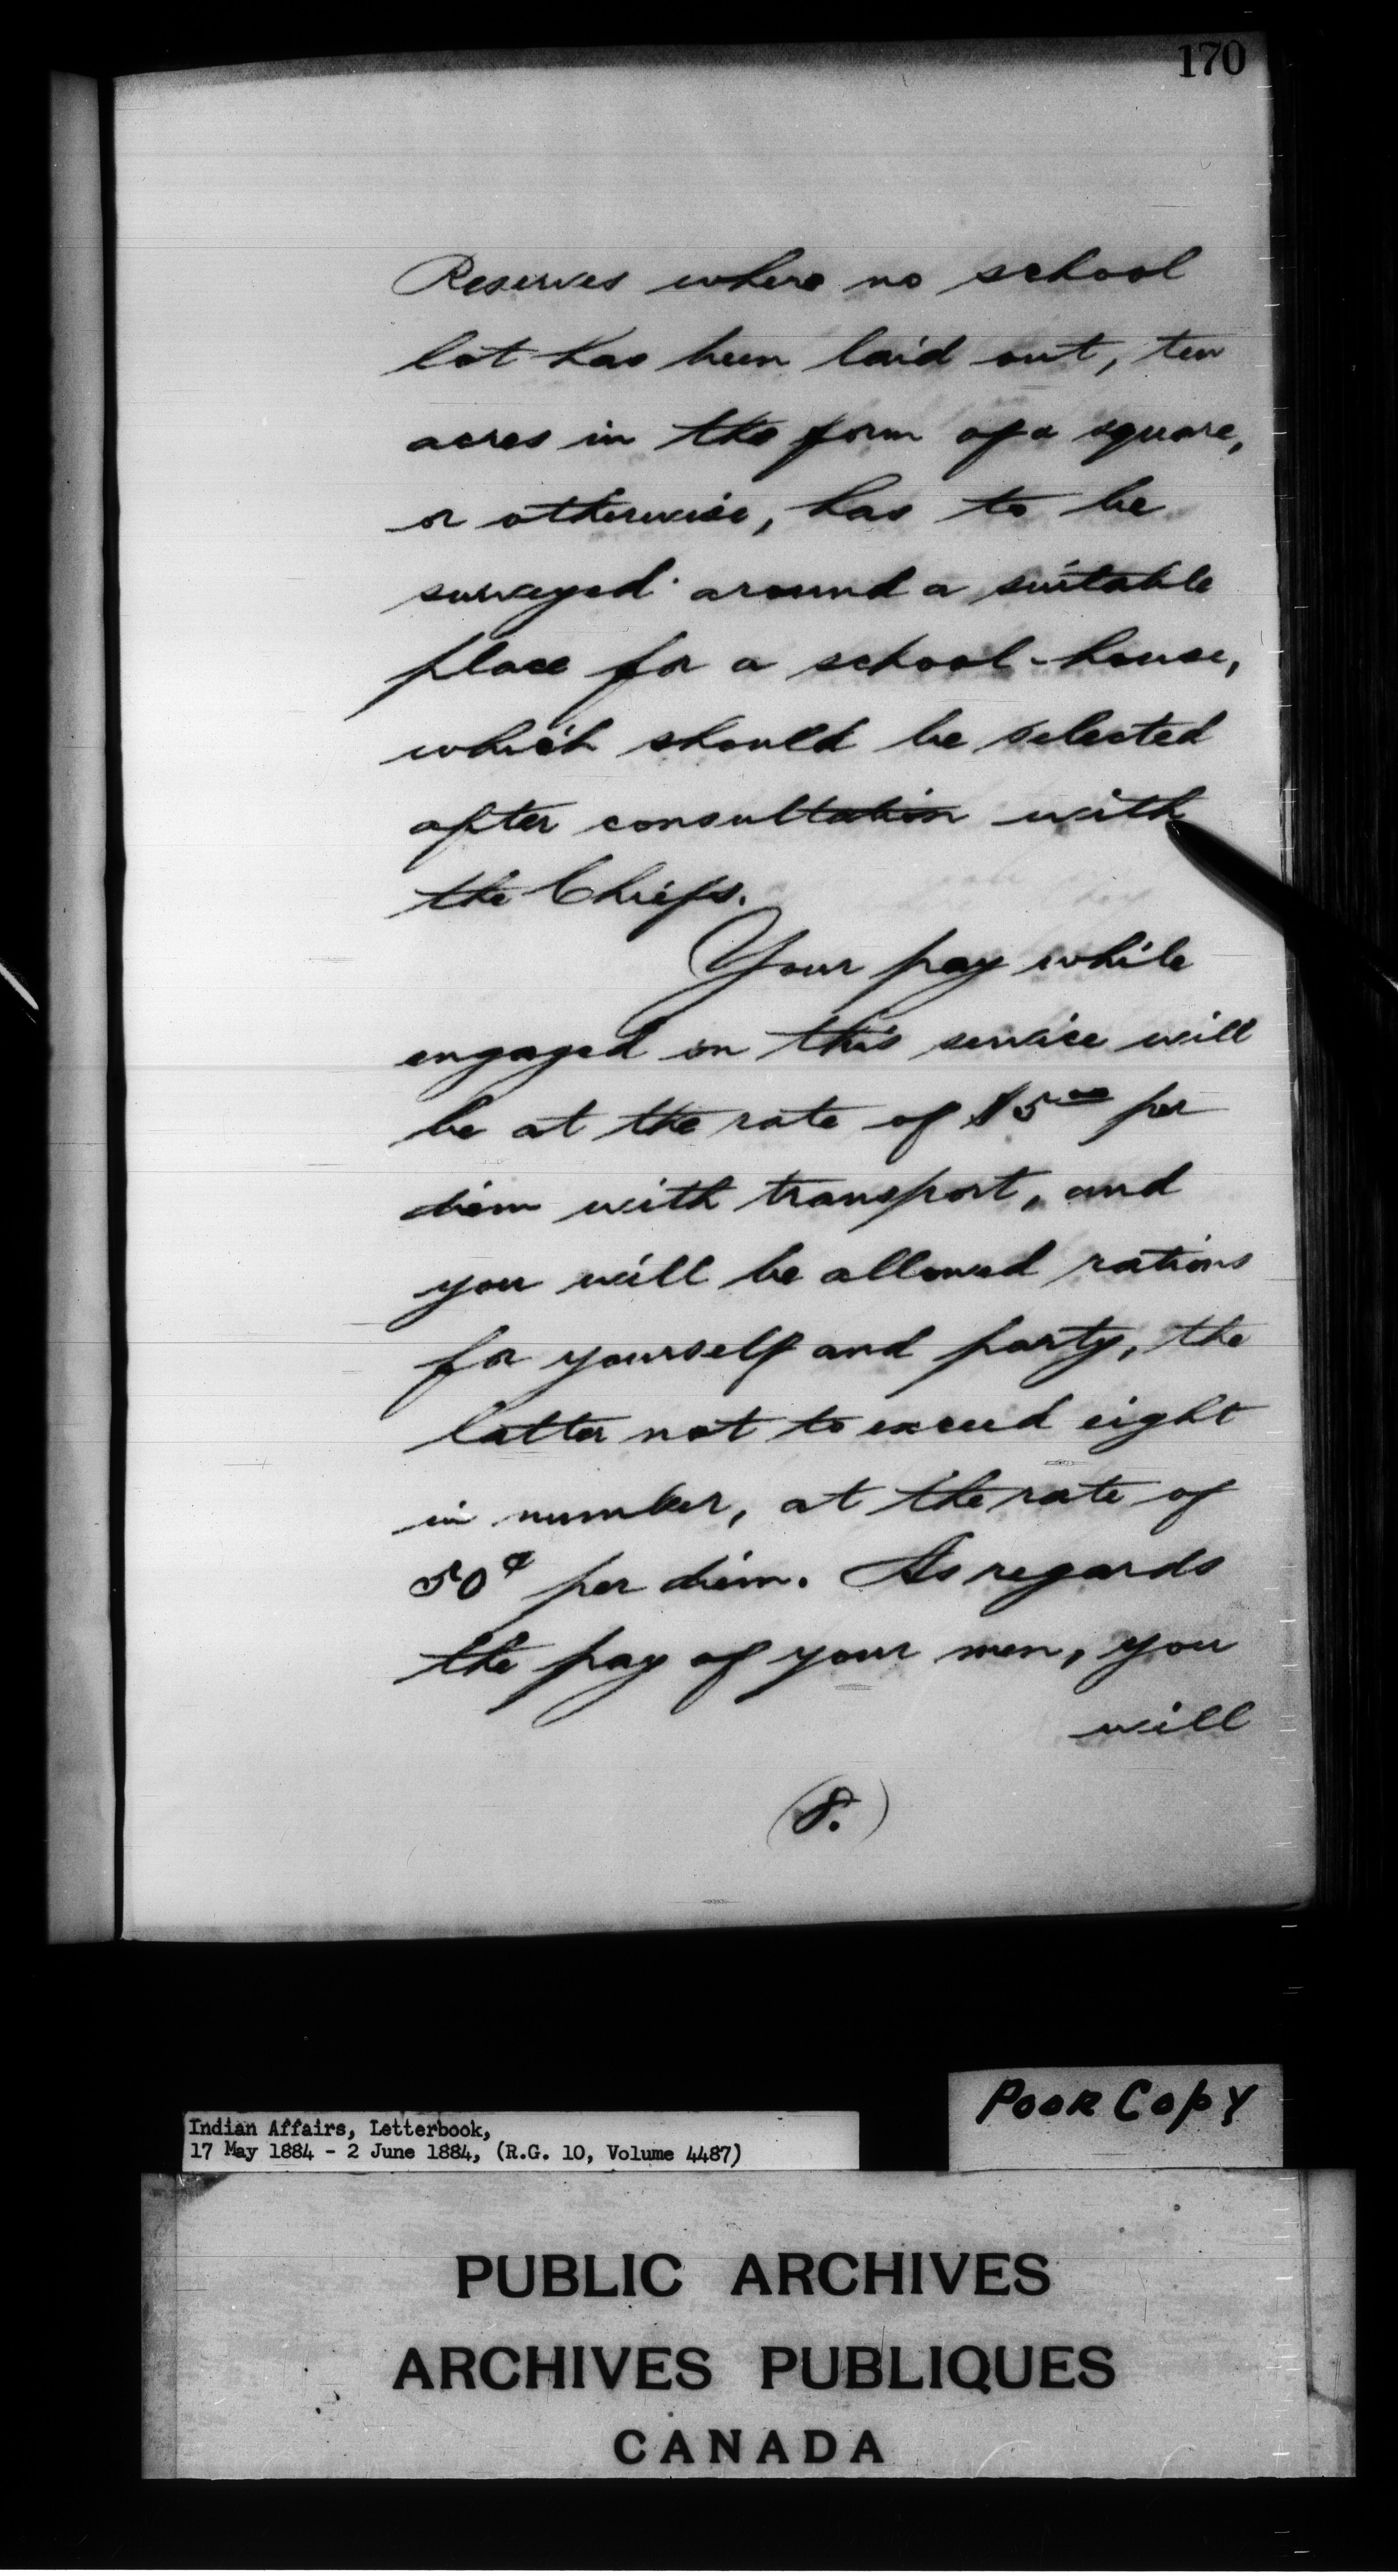 170
Reserves where no school
lot has been laid out, ten
acres in the form of a square,
or otherwise, has to be
surveyed around a suitable
place for a school-house,
which should be selected
after consultation with
the Chiefs.
Your pay while
engaged on this service will
be at the rate of $5.00 per
diem with transport, and
you will be allowed rations
for yourself and party, the
latter not to exceed eight
in number, at the rate of
50¢ per diem. As regards
the pay of your men, you
will
(8.)
Poor Copy
Indian Affairs, Letterbook,
17 May 1884 - 2 June 1884, (R.G. 10, Volume 4487)
PUBLIC ARCHIVES
ARCHIVES PUBLIQUES
CANADA